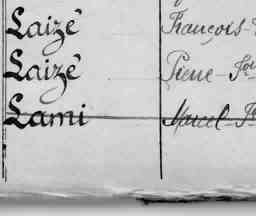 Laizé François
Laizé Pierre
Lami Marcel